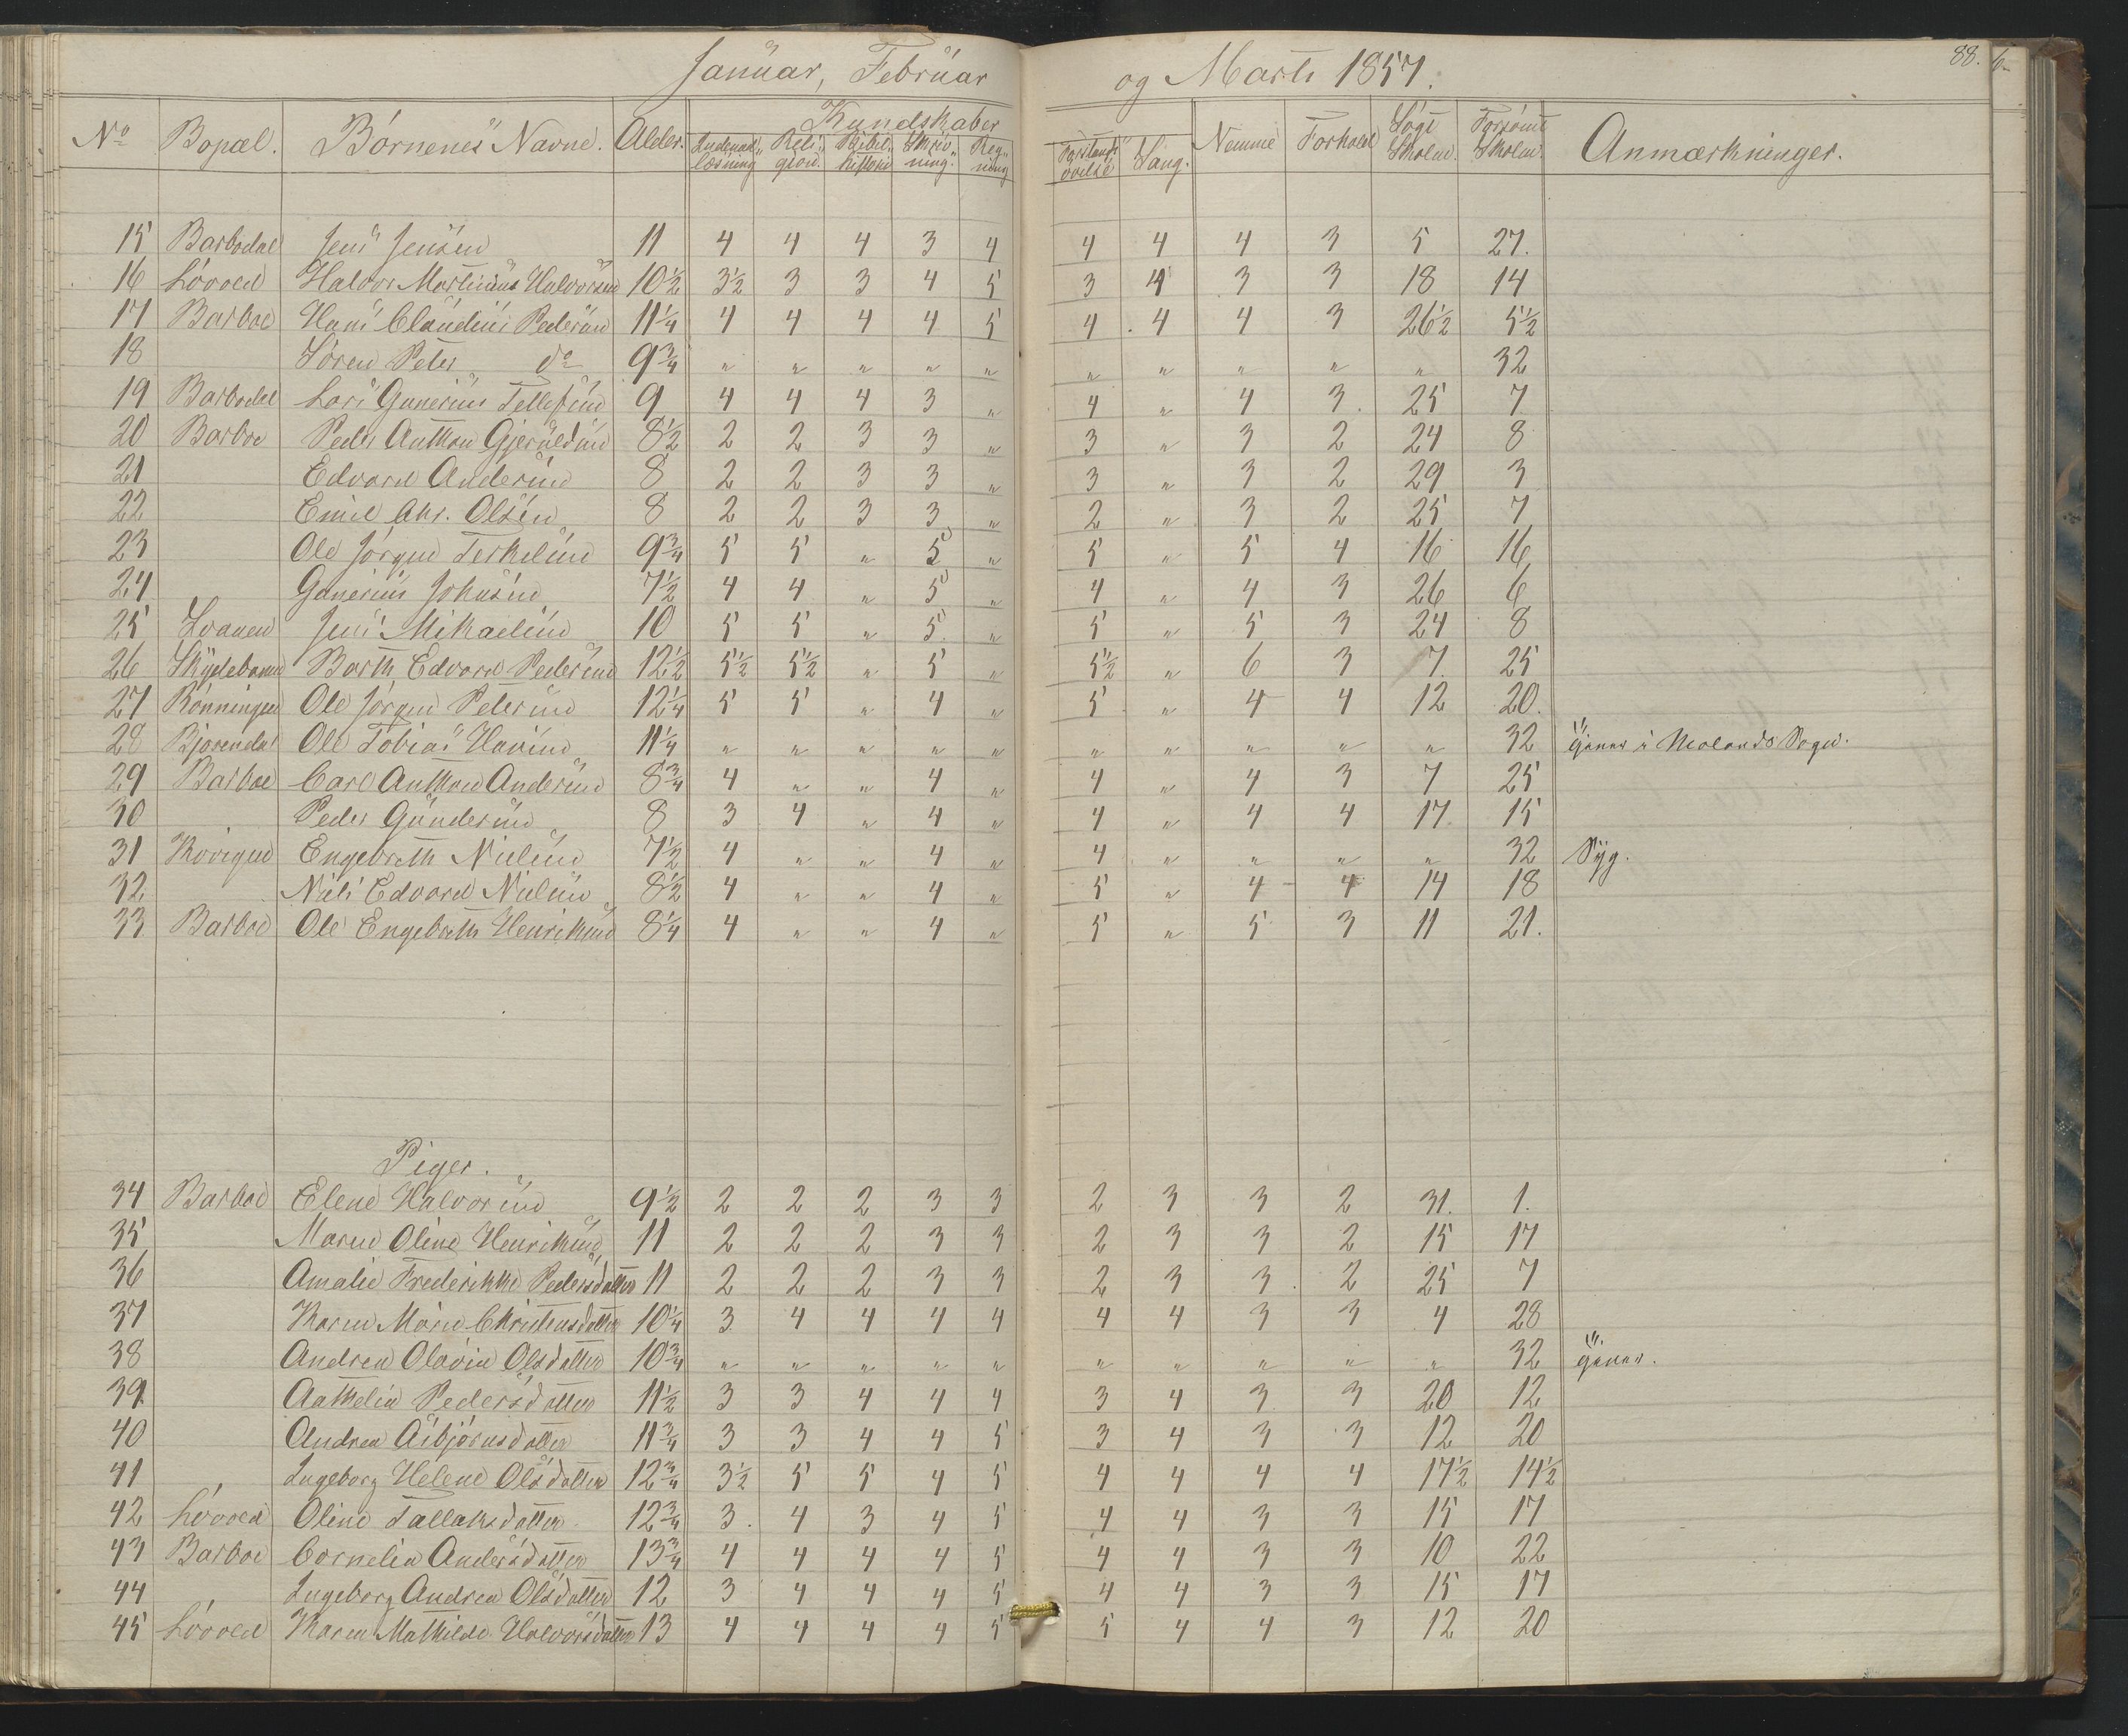 Januar, Februar og Marts 1857.
88.
No Bopæl. Børnenes Navne. Alder. Kundskaber Nemme Forhold Søgt Skolen. Forsømt Skolen. Anmærkninger.
Indenad- læsning Reli- gion. Bibel- historie Skriv- ning. Reg- ning Forstands- øvelse Sang.
15 Barbodal Jens Jensen 11 4 4 4 3 4 4 4 4 3 5 27.
16 Løvold Halvor Martinius Halvorsen 10 1/2 3 1/2 3 3 4 5 3 4 3 3 18 14
17 Barboe Hans Claudius Pedersen 11 1/4 4 4 4 4 5 4 4 4 3 26 1/2 5 1/2
18 Søren Peter do 9 3/4 " " " " " " " " " " 32
19 Barbodal Lars Gunerius Tellefsen 9 4 4 4 3 " 4 " 4 3 25 7
20 Barboe Peder Anthon Gjeruldsen 8 1/2 2 2 3 3 " 3 " 3 2 24 8
21 Edvard Andersen 8 2 2 3 3 " 3 " 3 2 29 3
22 Emil Chr. Olsen 8 2 2 3 3 " 2 " 3 2 25 7
23 Ole Jørgen Terkelsen 9 3/4 5 5 " 5 " 5 " 5 4 16 16
24 Gunerius Johnsen 7 1/2 4 4 " 5 " 4 " 4 3 26 6
25 Jens Mikaelsen 10 5 5 " 5 " 5 " 5 3 24 8
26 Skydebanen Barth Edvard Pedersen 12 1/2 5 1/2 5 1/2 " 5 " 5 1/2 " 6 3 7 25
27 Rønningen Ole Jørgen Pedersen 12 1/4 5 5 " 4 " 5 " 4 4 12 20.
28 Bjorendal Ole Tobias Hansen 11 1/4 " " " " " " " " " " 32 tjener i Molands Sogn.
29 Barboe Carl Anthon Andersen 8 3/4 4 " " 4 " 4 " 4 3 7 25
30 Peder Gundersen 8 3 4 " 4 " 4 " 4 4 17 15
31 Engebreth Nielsen 7 1/2 4 " " 4 " 4 " " " " 32 Syg.
32 Niels Edvard Nielsen 8 1/2 4 " " 4 " 5 " 4 4 14 18
33 Barboe Ole Engebreth Henriksen 8 1/4 4 " " 4 " 5 " 5 3 11 21.
Piger.
34 Barboe Elene Halvorsen 9 1/2 2 2 2 3 3 2 3 3 2 31. 1.
35 Maren Oline Henriksen 11 2 2 2 3 3 2 3 3 2 15 17
36 Amalie Frederikke Pedersdatter 11 2 2 2 3 3 2 3 3 2 25 7
37 Karen Marie Christensdatter 10 1/4 3 4 4 4 4 4 4 3 3 4 28
38 Andrea Olavia Olsdatter 10 3/4 " " " " " " " " " " 32 tjener.
39 Aathelia Pedersdatter 11 1/2 3 3 4 4 4 3 4 3 3 20 12
40 Andrea Asbjørnsdatter 11 3/4 3 3 4 4 5 3 4 3 3 12 20
41 Ingeborg Helene Olsdatter 12 3/4 3 1/2 5 5 4 5 4 4 4 4 17 1/2 14 1/2
42 Løvold Oline Tallaksdatter 12 3/4 3 4 3 4 5 4 4 3 3 15 17
43 Barboe Cornelia Andersdatter 13 3/4 4 4 4 4 5 4 4 3 3 10 22
44 Ingeborg Andrea Olsdatter 12 3 4 4 4 5 4 4 3 3 15 17
45 Løvold Karen Mathilde Halvorsdatter 13 4 4 4 4 5 5 4 4 3 12 20